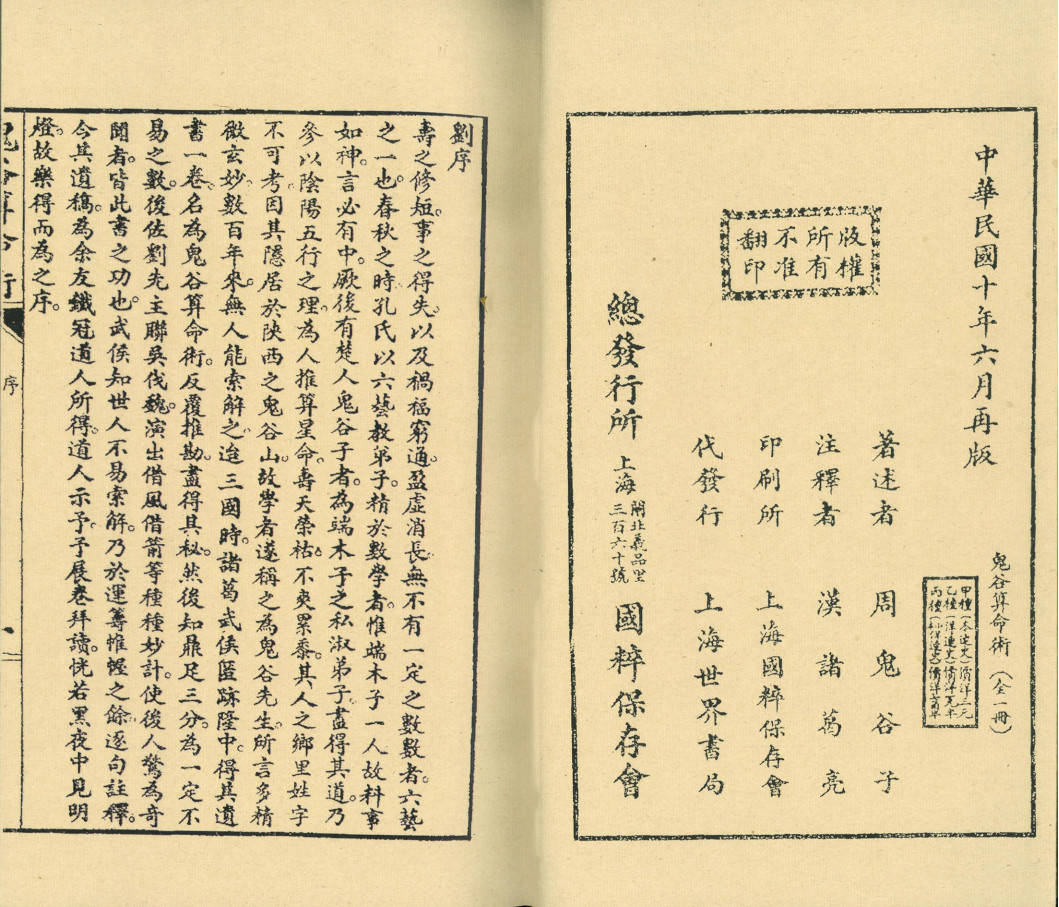 中華民國十年六月再版
版權
所有
不准
翻印
鬼谷算命術（全一冊）
甲種（本連史）價洋三元
著述者　周鬼谷子
注釋者　漢諸葛亮
印刷所　上海國粹保存會
代發行　上海世界書局
總發行所　上海閘北義品里三百六十號　國粹保存會
劉序
壽之修短。事之得失。以及禍福窮通。盈虛消長。無不有一定之數。數者。六藝
之一也。春秋之時。孔氏以六藝教弟子。精於數學者。惟端木子一人。故料事
如神。言必有中。厥後有楚人鬼谷子者。為端木子之私淑弟子。盡得其道。乃
參以陰陽五行之理。為人推算星命。壽夭榮枯。不爽累黍。其人之鄉里姓字
不可考。因其隱居於陝西之鬼谷山。故學者遂稱之為鬼谷先生。所言多精
微玄妙。數百年來。無人能索解之。迨三國時。諸葛武侯匿跡隆中。得其遺
書一卷。名為鬼谷算命術。反覆推勘。盡得其秘。然後知鼎足三分。為一定不
易之數。後佐劉先主聯吳伐魏。演出借風借箭等種種妙計。使後人驚為奇
聞者。皆此書之功也。武侯知世人不易索解。乃於運籌帷幄之餘。逐句註釋。
今其遺稿。為余友鐵冠道人所得。道人示予。予展卷拜讀。恍若黑夜中見明
燈。故樂得而為之序。
序